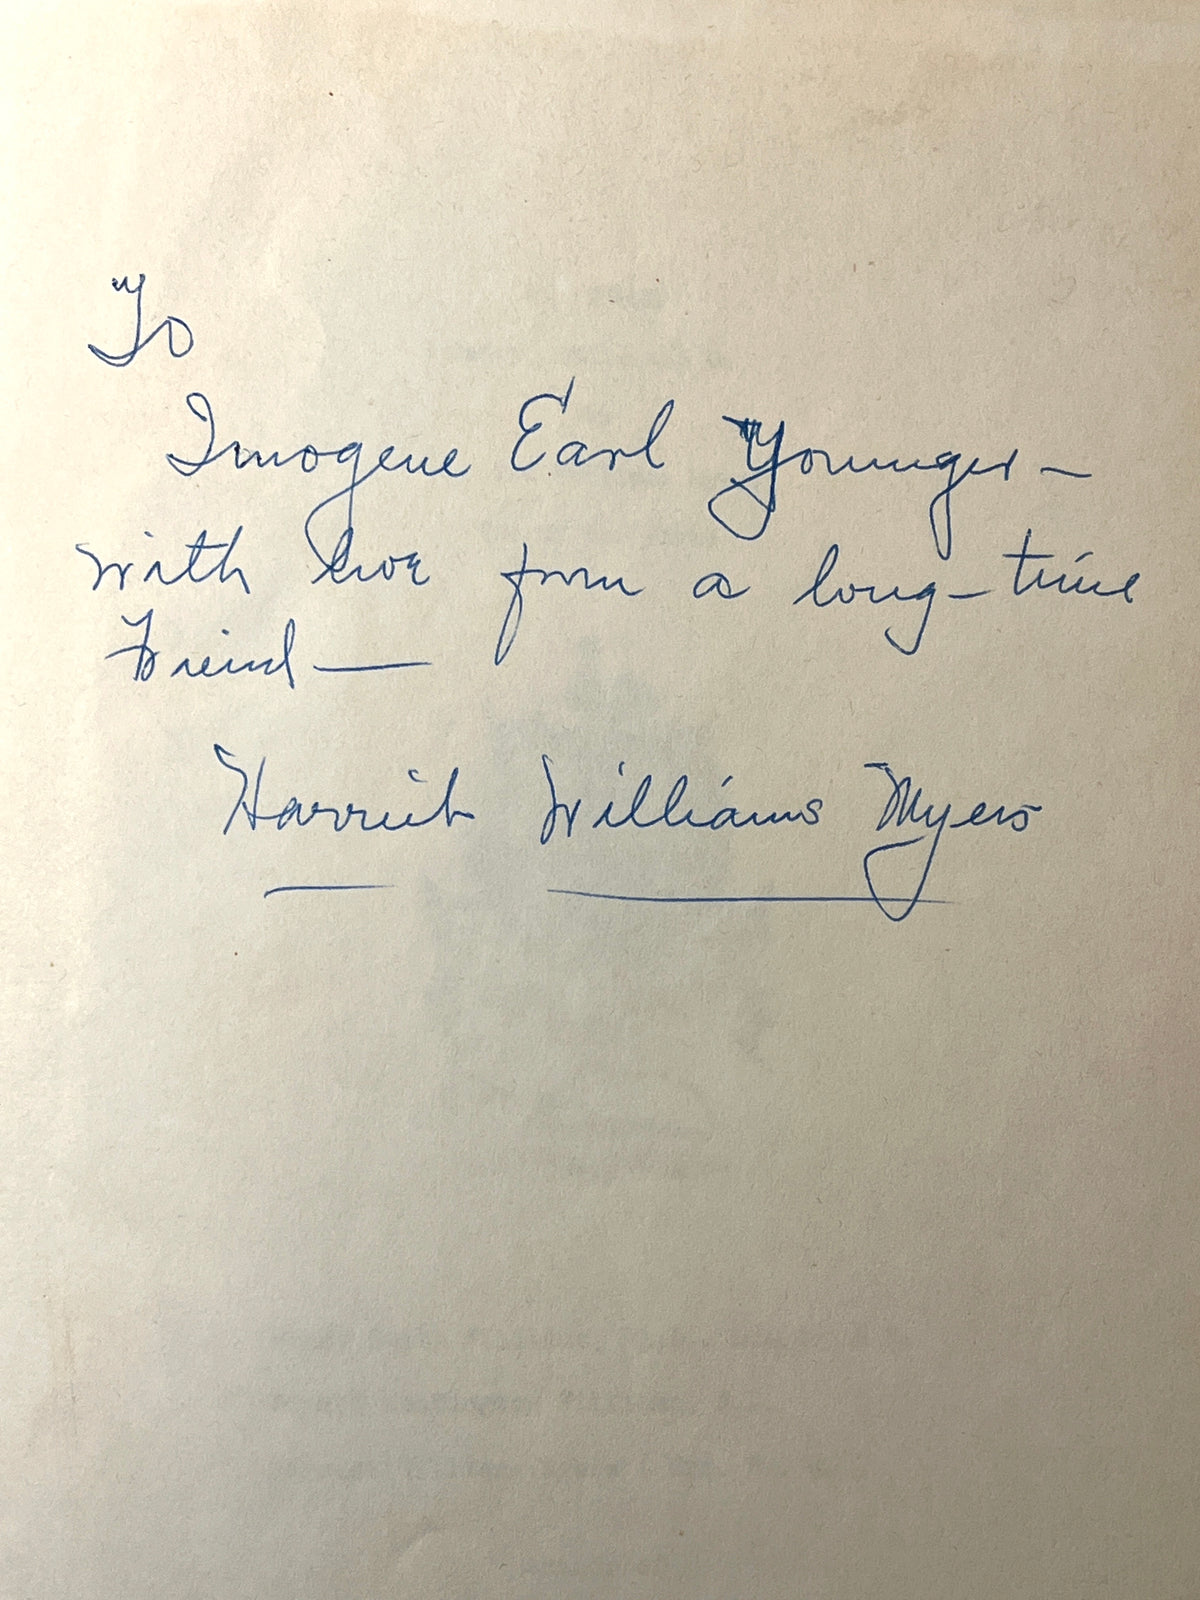 To
Imogene Earl Younger—
with love from a long-time
Friend—
Harriet Williams Myers